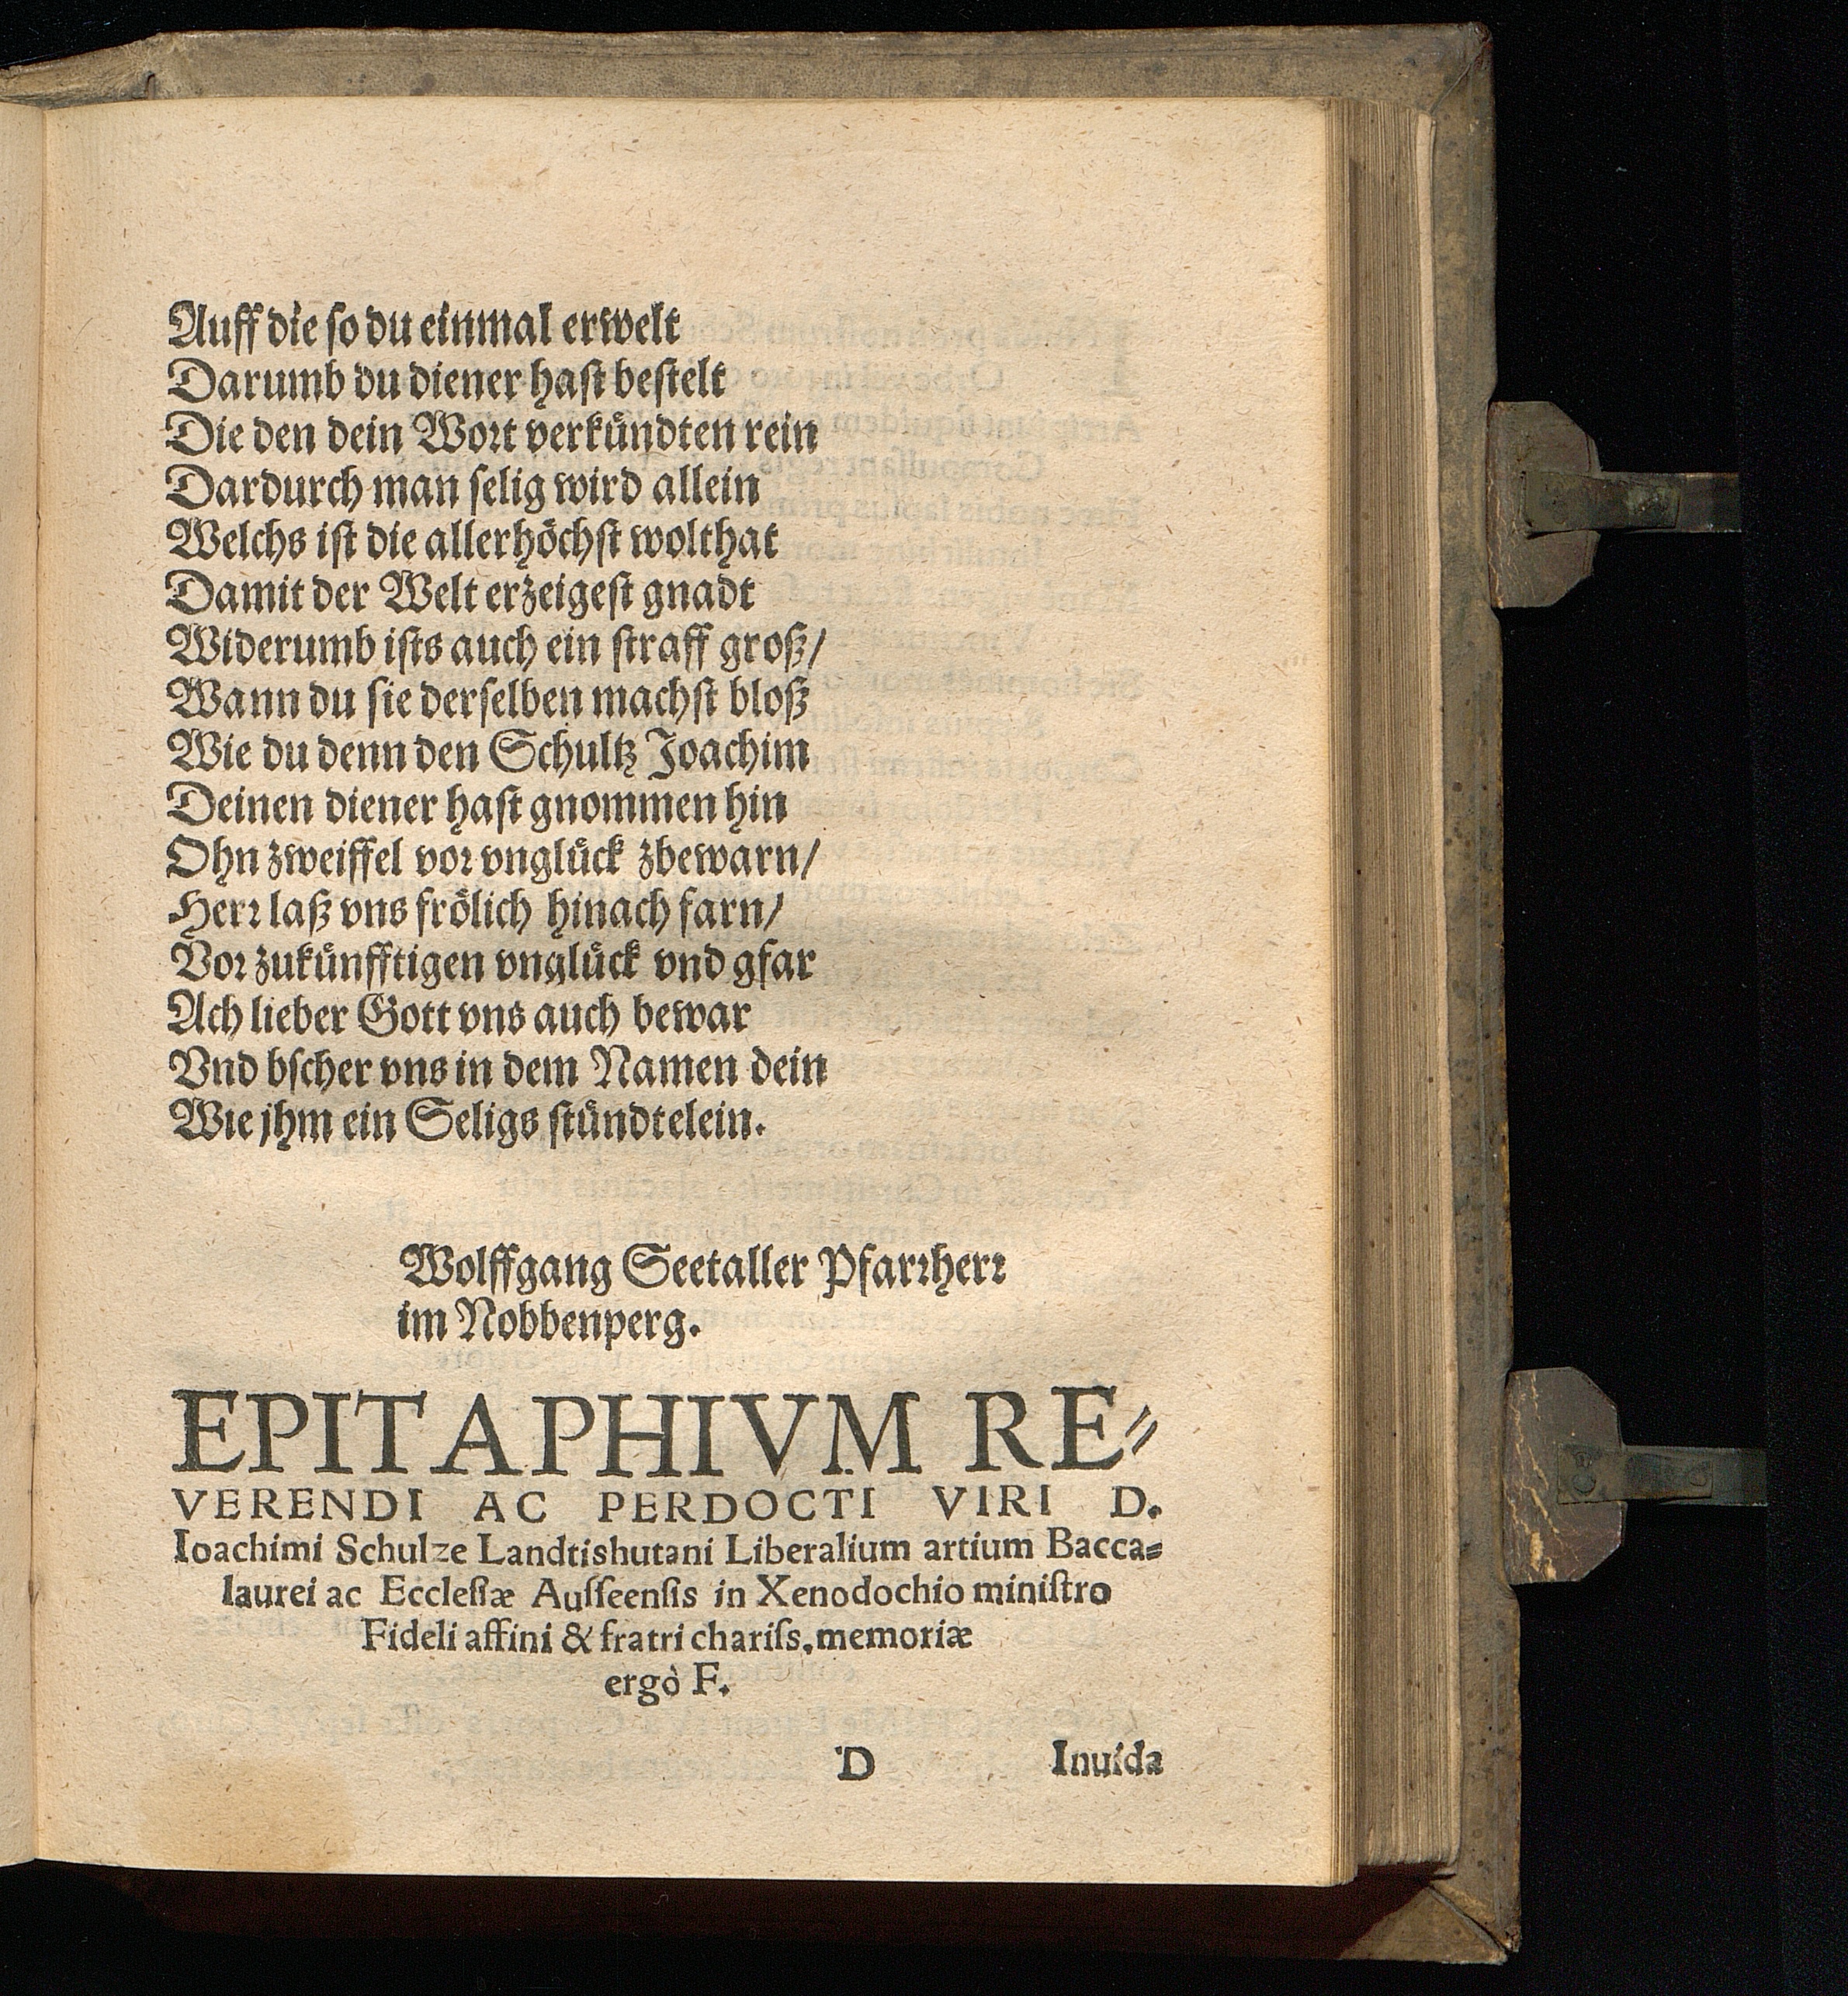 Auff die ſo du einmal erwelt
Darumb du diener haſt beſtelt
Die den dein Wort verkündten rein
Dardurch man ſelig wird allein
Welchs iſt die allerhöchſt wolthat
Damit der Welt erzeigeſt gnadt
Widerumb iſts auch ein ſtraff groß/
Wann du ſie derſelben machſt bloß
Wie du denn den Schultz Joachim
Deinen diener haſt gnommen hin
Ohn zweiffel vor vnglück zbewarn/
Herr laß vns frölich hinach farn/
Vor zukünfftigen vnglück vnd gfar
Ach lieber Gott vns auch bewar
Vnd bſcher vns in dem Namen dein
Wie jhm ein Seligs ſtündtelein.
Wolffgang Seetaller Pfarrherr
im Nobbenperg.
EPITAPHIVM RE⸗
VERENDI AC PERDOCTI VIRI D.
Ioachimi Schulze Landtishutani Liberalium artium Bacca⸗
laurei ac Eccleſiæ Auſſeenſis in Xenodochio miniſtro
Fideli affini & fratri chariſs. memoriæ
ergò F.
D Inuida